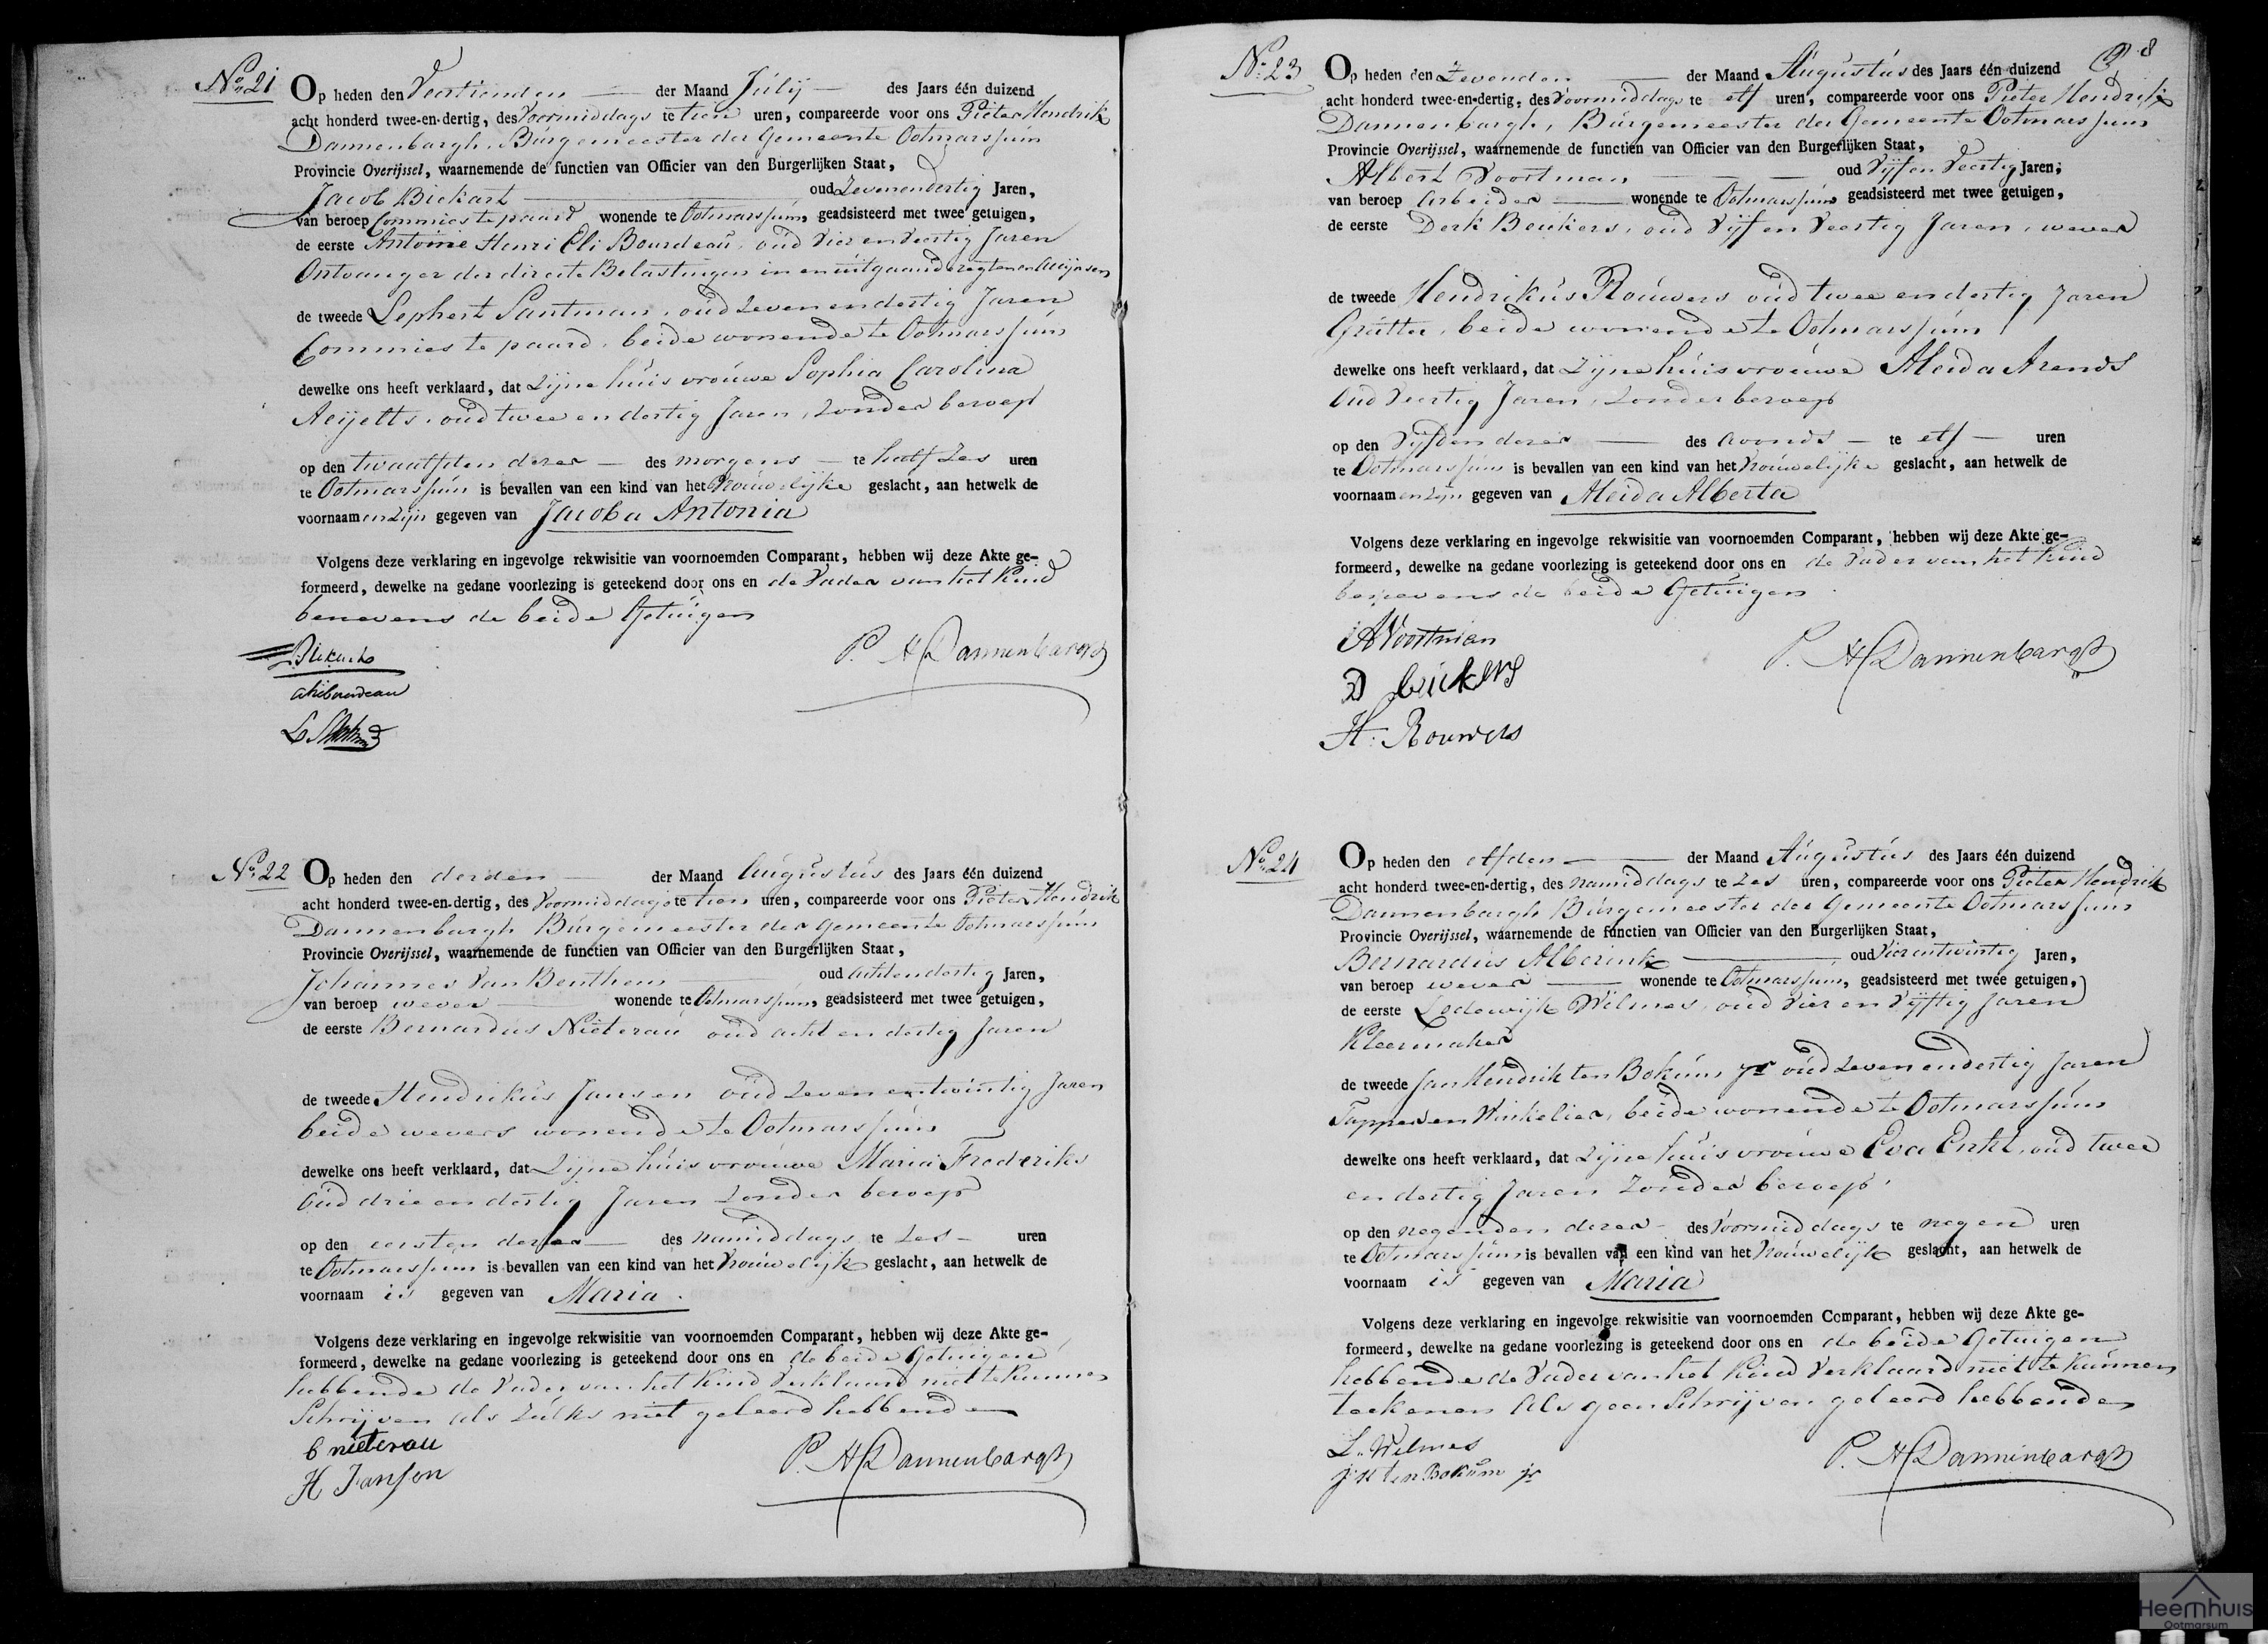 No. 21
Op heden den Veertienden der Maand Julij des Jaars één duizend
acht honderd twee-en-dertig, des Voormiddags te tien uren, compareerde voor ons Pieter Hendrik
Dannenbargh, Burgemeester der Gemeente Ootmarssum
Provincie Overijssel, waarnemende de functien van Officier van den Burgerlijken Staat,
Jacob Biekart oud Zevenendertig Jaren,
van beroep Commies te paard wonende te Ootmarssum, geadsisteerd met twee getuigen,
de eerste Antoine Henri Eli Bourdeau, oud Vier en Veertig Jaren
Ontvanger der directe Belastingen in en uitgaande regten en Accijnsen
de tweede Lephert Santman, oud Zevenendertig Jaren
Commies te paard, beide wonende te Ootmarssum
dewelke ons heeft verklaard, dat Zijne huisvrouwe Sophia Carolina
Aeijelts, oud twee en dertig Jaren, Zonder beroep
op den twaalfden dezer des morgens te half Zes uren
te Ootmarssum is bevallen van een kind van het Vrouwelijke geslacht, aan hetwelk de
voornaam en zijn gegeven van Jacoba Antonia
Volgens deze verklaring en ingevolge rekwisitie van voornoemden Comparant, hebben wij deze Akte ge-
formeerd, dewelke na gedane voorlezing is geteekend door ons en de Vader van het Kind
benevens de beide Getuigen
Biekart
P. H Dannenbargh
ahebourdeau
No. 22
Op heden den derden der Maand Augustus des Jaars één duizend
acht honderd twee-en-dertig, des Voormiddags te tien uren, compareerde voor ons Pieter Hendrik
Dannenbargh Burgemeester der Gemeente Ootmarssum
Provincie Overijssel, waarnemende de functien van Officier van den Burgerlijken Staat,
Johannes Van Benthem oud Achtendertig Jaren,
van beroep wever wonende te Ootmarssum, geadsisteerd met twee getuigen,
de eerste Bernardus Nieterau oud acht en dertig Jaren
de tweede Hendrikus Jansen oud Zeven entwintig Jaren
beide wevers wonende te Ootmarssum
dewelke ons heeft verklaard, dat Zijne huisvrouwe Maria Frederiks
Oud drie en dertig Jaren Zonder beroep
op den eersten dezer des namiddags te Zes uren
te Ootmarssum is bevallen van een kind van het Vrouwelijk geslacht, aan hetwelk de
voornaam is gegeven van Maria.
Volgens deze verklaring en ingevolge rekwisitie van voornoemden Comparant, hebben wij deze Akte ge-
formeerd, dewelke na gedane voorlezing is geteekend door ons en de beide Getuigen
hebbende de Vader van het Kind Verklaard niet te kunnen
Schrijven als zulks niet geleerd hebbende
b nieterau
P. H Dannenbargh
H Jansen
8
No. 23
Op heden den Zevenden der Maand Augustus des Jaars één duizend
acht honderd twee-en-dertig, des Voormiddags te elf uren, compareerde voor ons Pieter Hendrik
Dannenbargh, Burgemeester der Gemeente Ootmarssum
Provincie Overijssel, waarnemende de functien van Officier van den Burgerlijken Staat,
Albert Voortman oud Vijf en Veertig Jaren,
van beroep Arbeider wonende te Ootmarssum, geadsisteerd met twee getuigen,
de eerste Derk Beukers, oud Vijf en Veertig Jaren, wever
de tweede Hendrikus Rouwers oud twee en dertig Jaren
Grutter, beide wonende te Ootmarssum
dewelke ons heeft verklaard, dat Zijne huisvrouwe Aleida Arends
Oud Veertig Jaren, Zonder beroep
op den Vijfden dezer des Avonds te elf uren
te Ootmarssum is bevallen van een kind van het Vrouwelijke geslacht, aan hetwelk de
voornaam en zijn gegeven van Aleida Alberta
Volgens deze verklaring en ingevolge rekwisitie van voornoemden Comparant, hebben wij deze Akte ge-
formeerd, dewelke na gedane voorlezing is geteekend door ons en de Vader van het Kind
benevens de beide Getuigen
A Voortman
P. H Dannenbargh
D beukers
H. Rouwers
No. 24
Op heden den elfden der Maand Augustus des Jaars één duizend
acht honderd twee-en-dertig, des namiddags te Zes uren, compareerde voor ons Pieter Hendrik
Dannenbargh Burgemeester der Gemeente Ootmarssum
Provincie Overijssel, waarnemende de functien van Officier van den Burgerlijken Staat,
Bernardus Alberink oud Vierentwintig Jaren,
van beroep wever wonende te Ootmarssum, geadsisteerd met twee getuigen,
de eerste Lodewijk Wilmes, oud Vier en Vijftig Jaren
Kleermaker
de tweede Jan Hendrik ten Bokum jr oud Zevenendertig Jaren
Tapper en Winkelier, beide wonende te Ootmarssum
dewelke ons heeft verklaard, dat Zijne huisvrouwe Eva Enkt, oud twee
en dertig Jaren Zonder beroep
op den negenden dezer des Voormiddags te negen uren
te Ootmarssum is bevallen van een kind van het Vrouwelijk geslacht, aan hetwelk de
voornaam is gegeven van Maria
Volgens deze verklaring en ingevolge rekwisitie van voornoemden Comparant, hebben wij deze Akte ge-
formeerd, dewelke na gedane voorlezing is geteekend door ons en de beide Getuigen
hebbende de Vader van het Kind Verklaard niet te kunnen
teekenen als geen Schrijven geleerd hebbende
L. Wilmes
P. H Dannenbargh
J H ten Bokum jr
Heemhuis
Ootmarsum